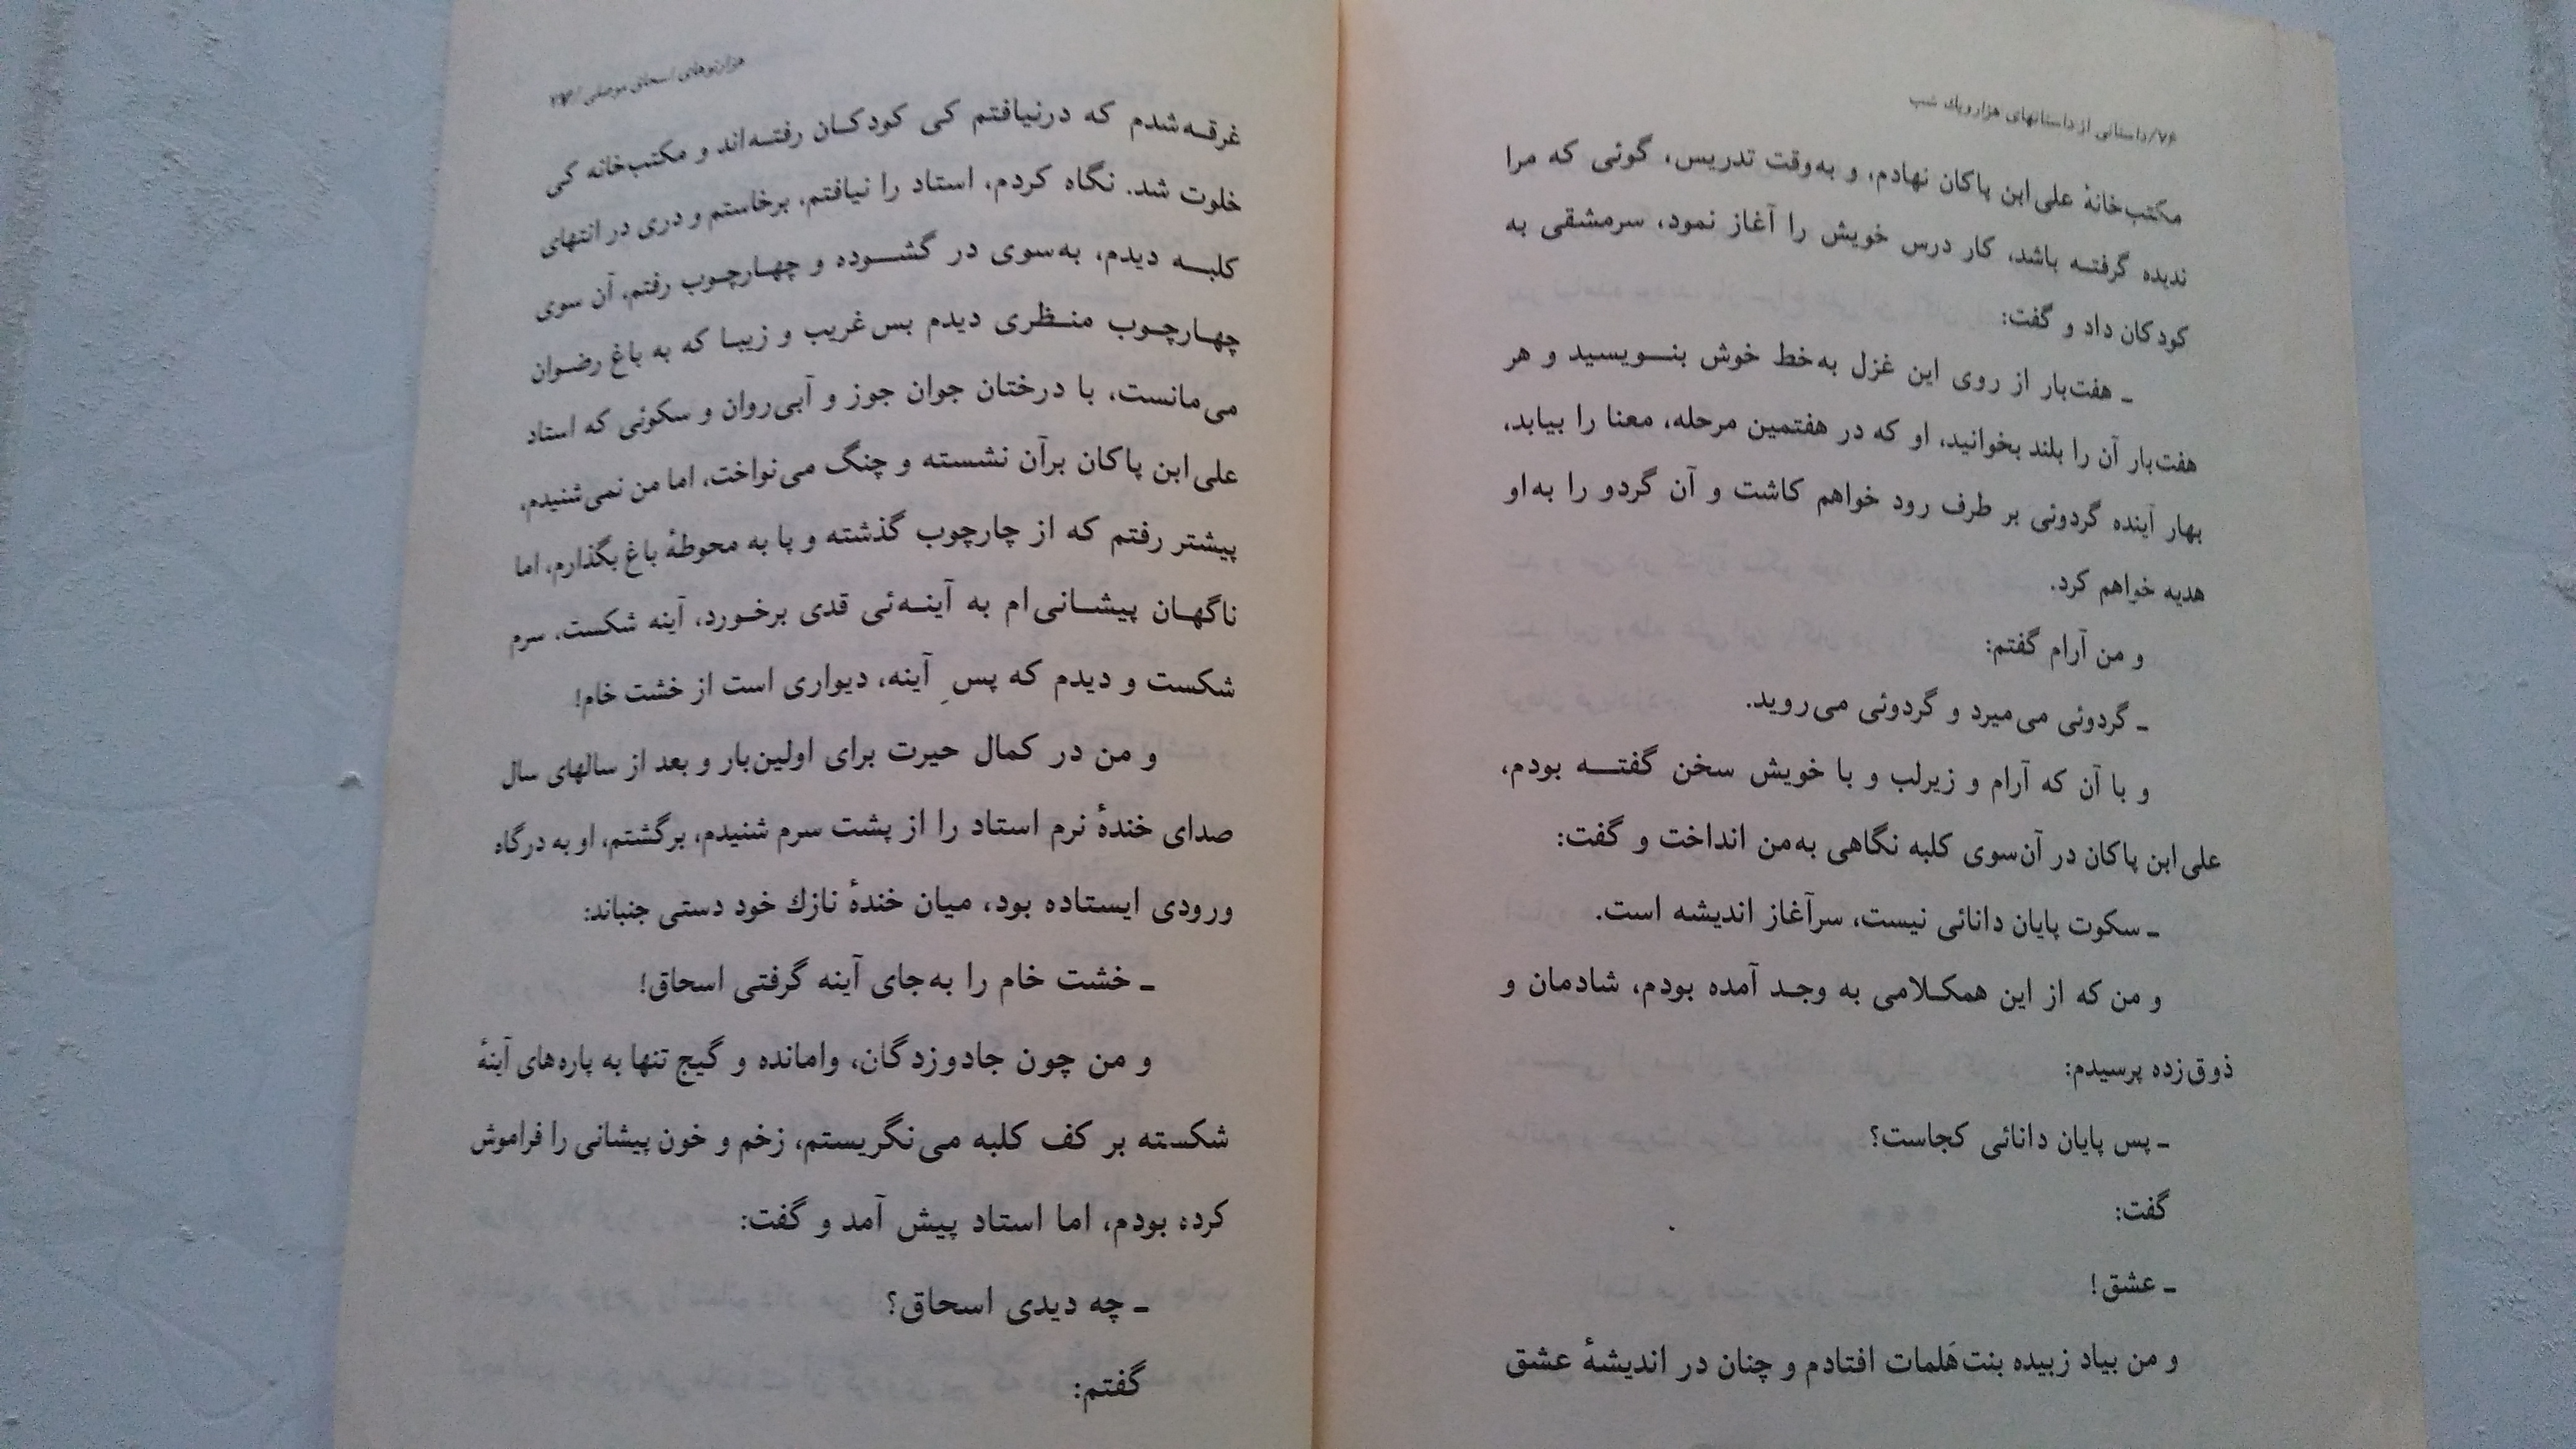 ۷۶/داستانی از داستانهای هزارویك شب
مکتب‌خانهٔ علی‌ابن پاکان نهادم، و به‌وقت تدریس، گوئی که مرا
ندیده گرفتـه باشد، کار درس خویش را آغاز نمود، سرمشقی به
کودکان داد و گفت:
ـ هفت‌بار از روی این غزل به‌خط خوش بنـویسید و هر
هفت‌بار آن را بلند بخوانید، او که در هفتمین مرحله، معنا را بیابد،
بهار آینده گردوئی بر طرف رود خواهم کاشت و آن گردو را به‌او
هدیه خواهم کرد.
و من آرام گفتم:
ـ گردوئی می‌میرد و گردوئی می‌روید.
و با آن که آرام و زیرلب و با خویش سخن گفتـه بودم،
علی‌ابن پاکان در آن‌سوی کلبه نگاهی به‌من انداخت و گفت:
ـ سکوت پایان دانائی نیست، سرآغاز اندیشه است.
و من که از این همکـلامی به وجـد آمده بودم، شادمان و
ذوق‌زده پرسیدم:
ـ پس پایان دانائی کجاست؟
گفت:
ـ عشق!
و من بیاد زبیده بنت‌هَلمات افتادم و چنان در اندیشهٔ عشق
هزارتوهای اسحاق موصلی/
غرقـه‌شدم که درنیافتم کی کودکـان رفتـه‌اند و مکتب‌خانه کی
خلوت شد. نگاه کردم، استاد را نیافتم، برخاستم و دری در انتهای
کلبـه دیدم، به‌سوی در گشـوده و چهـارچـوب رفتم، آن سوی
چهـارچـوب منـظری دیدم بس‌غریب و زیبـا که به باغ رضـوان
می‌مانست، با درختان جوان جوز و آبی‌روان و سکوئی که استاد
علی‌ابن پاکان برآن نشسته و چنگ می‌نواخت، اما من نمی‌شنیدم،
پیشتر رفتم که از چارچوب گذشته و پا به محوطهٔ باغ بگذارم، اما
ناگهـان پیشـانی‌ام به آینـه‌ئی قدی برخـورد، آینه شکست، سرم
شکست و دیدم که پسِ آینه، دیواری است از خشت خام!
و من در کمال حیرت برای اولین‌بار و بعد از سالهای سال
صدای خندهٔ نرم استاد را از پشت سرم شنیدم، برگشتم، او به درگاه
ورودی ایستاده بود، میان خندهٔ نازك خود دستی جنباند:
ـ خشت خام را به‌جای آینه گرفتی اسحاق!
و من چون جادوزدگان، وامانده و گیج تنها به پاره‌های آینهٔ
شکسته بر کف کلبه می‌نگریستم، زخم و خون پیشانی را فراموش
کرده بودم، اما استاد پیش آمد و گفت:
ـ چه دیدی اسحاق؟
گفتم: